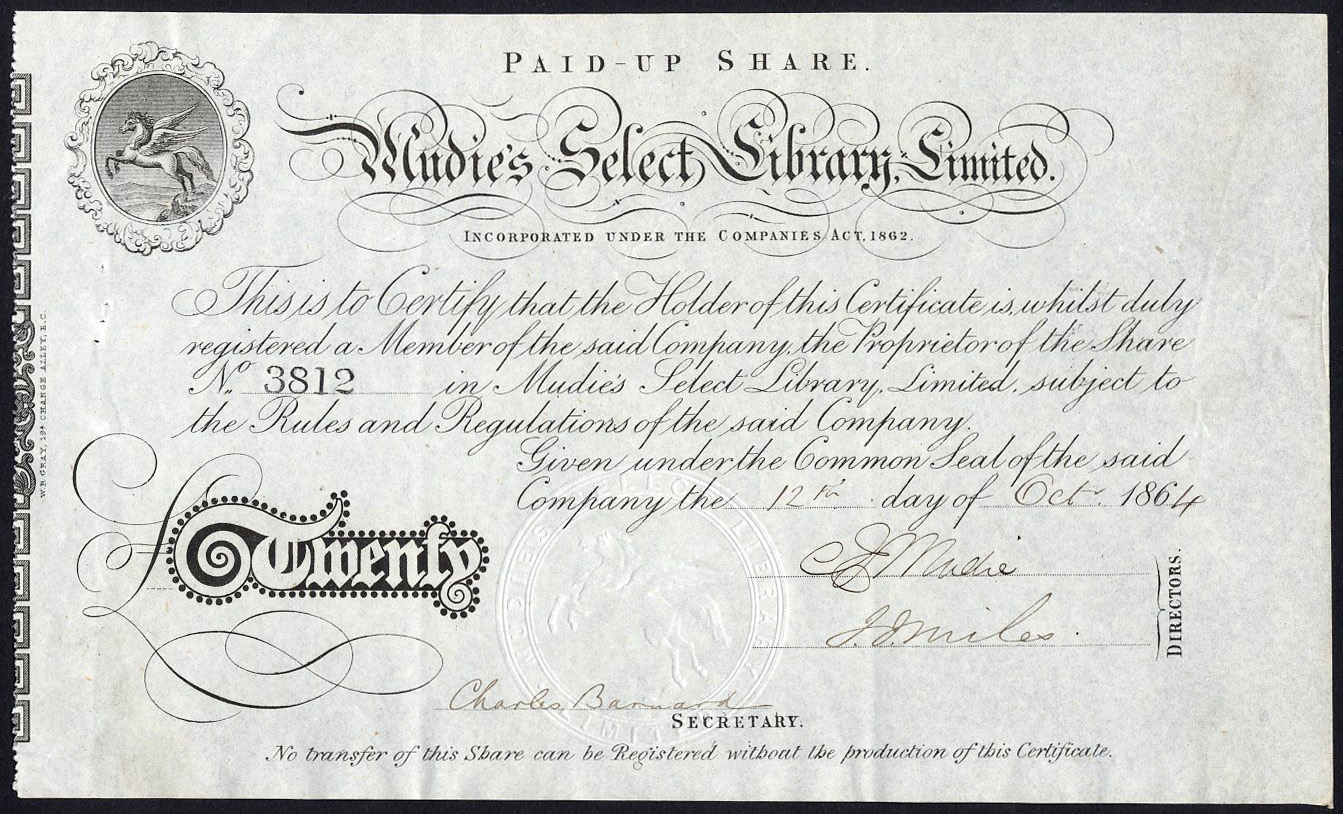 PAID-UP SHARE.
Mudie's Select Library, Limited.
INCORPORATED UNDER THE COMPANIES ACT, 1862.
This is to Certify that the Holder of this Certificate is, whilst duly
registered a Member of the said Company, the Proprietor of the Share
No. 3812 in Mudie's Select Library, Limited, subject to
the Rules and Regulations of the said Company.
Given under the Common Seal of the said
Company the 12th day of Octr. 1864
Twenty
C E Mudie
J. J. Miles.
DIRECTORS.
Charles Barnard
SECRETARY.
No transfer of this Share can be Registered without the production of this Certificate.
MUDIE'S SELECT LIBRARY LIMITED